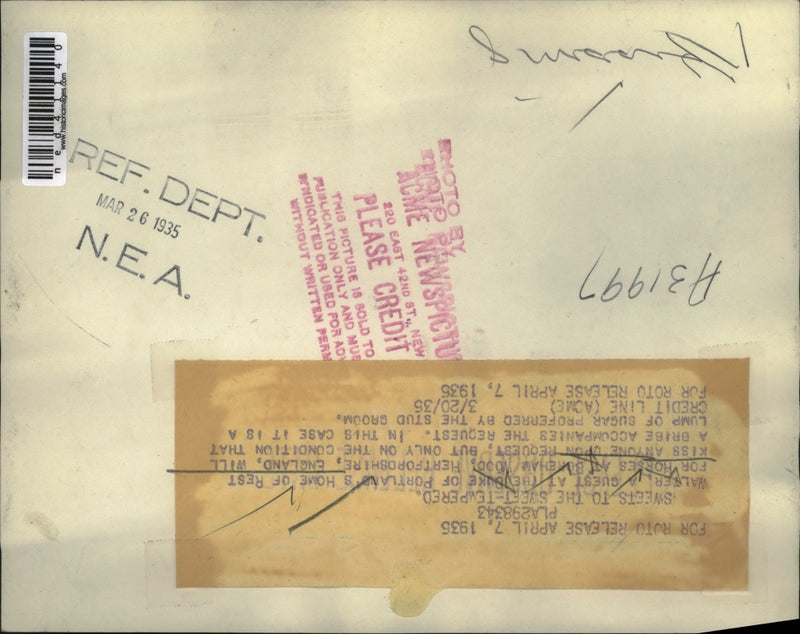 ned41140
www.historicimages.com
REF. DEPT.
MAR 26 1935
N.E.A.
PHOTO BY
ACME NEWSPICTU
220 EAST 42ND ST., NEW
PLEASE CREDIT
THIS PICTURE IS SOLD TO
PUBLICATION ONLY AND MUS
SYNDICATED OR USED FOR ADV
WITHOUT WRITTEN PERM
A31997
FOR ROTO RELEASE APRIL 7, 1935
PLA298343
SWEETS TO THE SWEET-TEMPERED.
WALTER, A GUEST AT THE DUKE OF PORTLAND'S HOME OF REST
FOR HORSES AT BOREHAM WOOD, HERTFORDSHIRE, ENGLAND, WILL
KISS ANYONE ON REQUEST, BUT ONLY ON THE CONDITION THAT
A BRIBE ACCOMPANIES THE REQUEST. IN THIS CASE IT IS A
LUMP OF SUGAR PROFERRED BY THE STUD GROOM.
CREDIT LINE (ACME) 3/20/35
FOR ROTO RELEASE APRIL 7, 1935